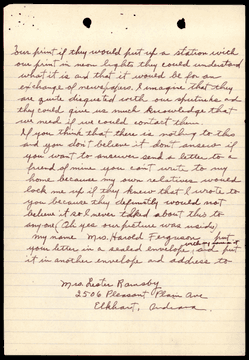 our print if they would put up a station with
our print in neon lights they could understand
what it is and that it would be for an
exchange of newspapers. I imagine that they
are quite disgusted with our sputniks and
they could give us much knowledge that
we need if we could contact them.
If you think that there is nothing to this
and you don't believe it dont answer if
you want to answer send a letter to a
friend of mine you cant write to my
home because my own relatives would
lock me up if they knew that I wrote to
you because they definitly would not
believe it so I never talked about this to
anyone (Oh yes our picture was
my name Mrs. Harold Ferguson put
your letter in a sealed envelope and put
it in another envelope and address to
Mrs Lester
2506 Pleasant Plain Ave
Elkhart, Indiana.